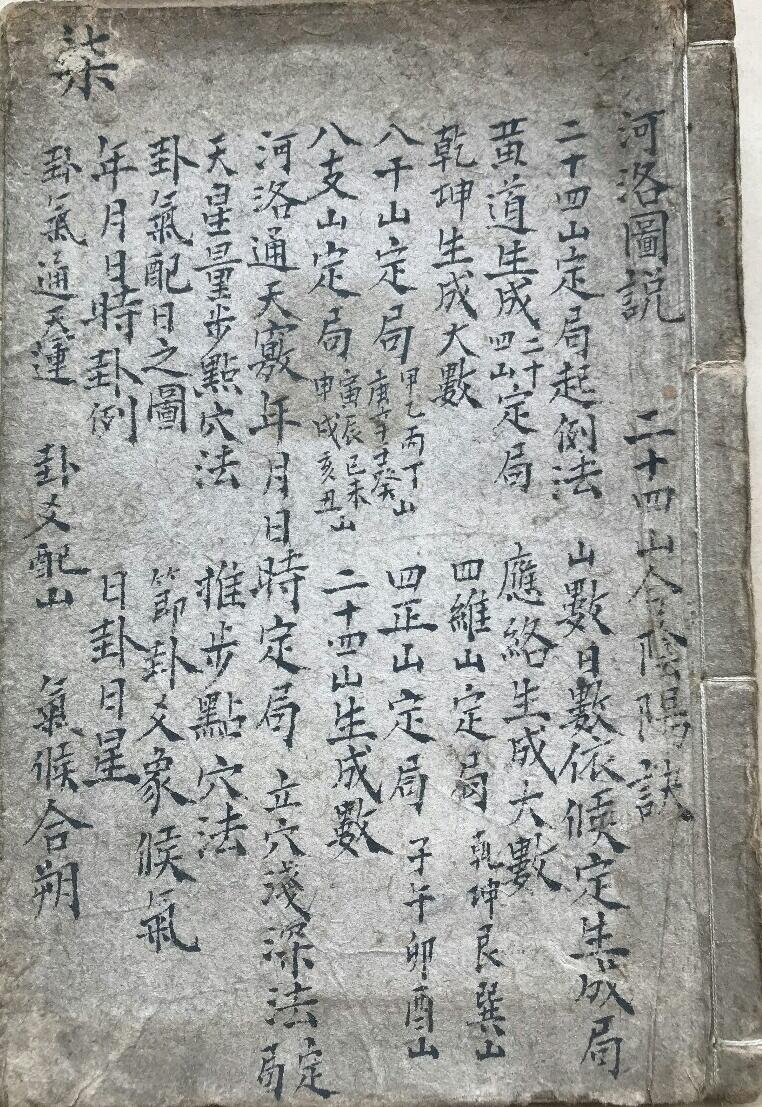 河洛圖説 二十四山合陰陽訣
二十四山定局起例法 山數日數依候定生成局
黃道生成二十四山定局 應絡生成大數
乾坤生成大數 四維山定局 乾坤艮巽山
八干山定局 甲乙丙丁山庚辛壬癸 四正山定局 子午卯酉山
八支山定局 寅辰巳未申戌亥丑山 二十四山生成數
河洛通天竅年月日時定局 立穴淺深法定局
天星量步點穴法 推步點穴法
卦氣配日之圖 節卦爻象候氣
年月日時卦例 日卦日星
卦氣通天運 卦爻配山 氣候合朔
柒